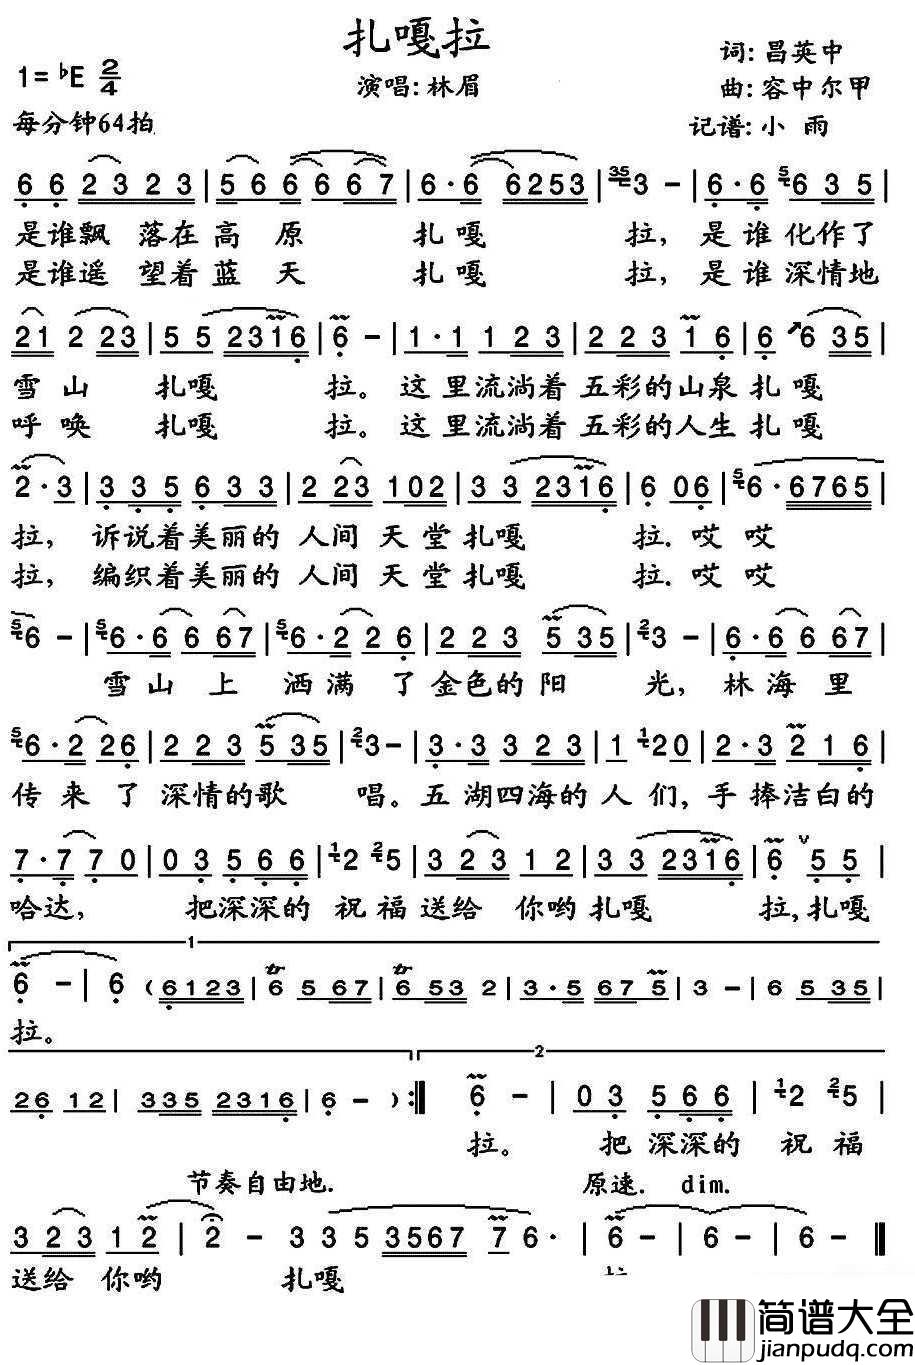 扎嘎拉
1=♭E 2/4
演唱:林眉
词:昌英中
曲:容中尔甲
每分钟64拍
记谱:小雨
6 6 2 3 2 3 | 5 6 6 6 6 7 | 6·6 6253 | 35 3 - | 6·6 5 6 3 5 |
是谁飘 落在高 原 扎嘎 拉,是谁化作了
是谁遥 望着蓝 天 扎嘎 拉,是谁深情地
21 2 23 | 5 5 2316 | 6 - | 1·1 1 2 3 | 2 2 3 1 6 | 6 6 35 |
雪山 扎嘎 拉。这里流淌着五彩的山泉扎嘎
呼唤 扎嘎 拉。这里流淌着五彩的人生扎嘎
2·3 | 3 3 5 6 3 3 | 2 23 102 | 3 3 2316 | 6 06 | 5 6·6765 |
拉,诉说着美丽的人间天堂扎嘎 拉.哎哎
拉,编织着美丽的人间天堂扎嘎 拉.哎哎
5 6 - | 5 6·6 6 67 | 5 6·2 2 6 | 2 2 3 5 35 | 2 3 - | 6·6 6 67 |
雪山上 洒满了金色的阳 光,林海里
5 6·2 26 | 2 2 3 5 35 | 2 3 - | 3·3 3 2 3 | 1 1 20 | 2·3 2 1 6 |
传来了深情的歌 唱。五湖四海的人们,手捧洁白的
7·7 7 0 | 0 3 5 6 6 | 1 2 2 5 | 3 23 1 2 | 3 3 2316 | 6 v 5 5 |
哈达, 把深深的祝福送给你哟扎嘎 拉,扎嘎
1
6 - | 6 (6123 | 6 5 67 | 6 53 2 | 3·5 67 5 | 3 - | 6 5 35 |
拉。
2
26 12 | 335 2316 | 6 - ) :‖ 6 - | 0 3 5 6 6 | 1 2 2 5 |
拉。 把深深的祝福
节奏自由地. 原速. dim.
3 23 1 2 | 2 - 3 3 5 3567 7 6· | 6 - | 6 - | 6 - ‖
送给你哟 扎嘎
简谱大全
jianpudq.com